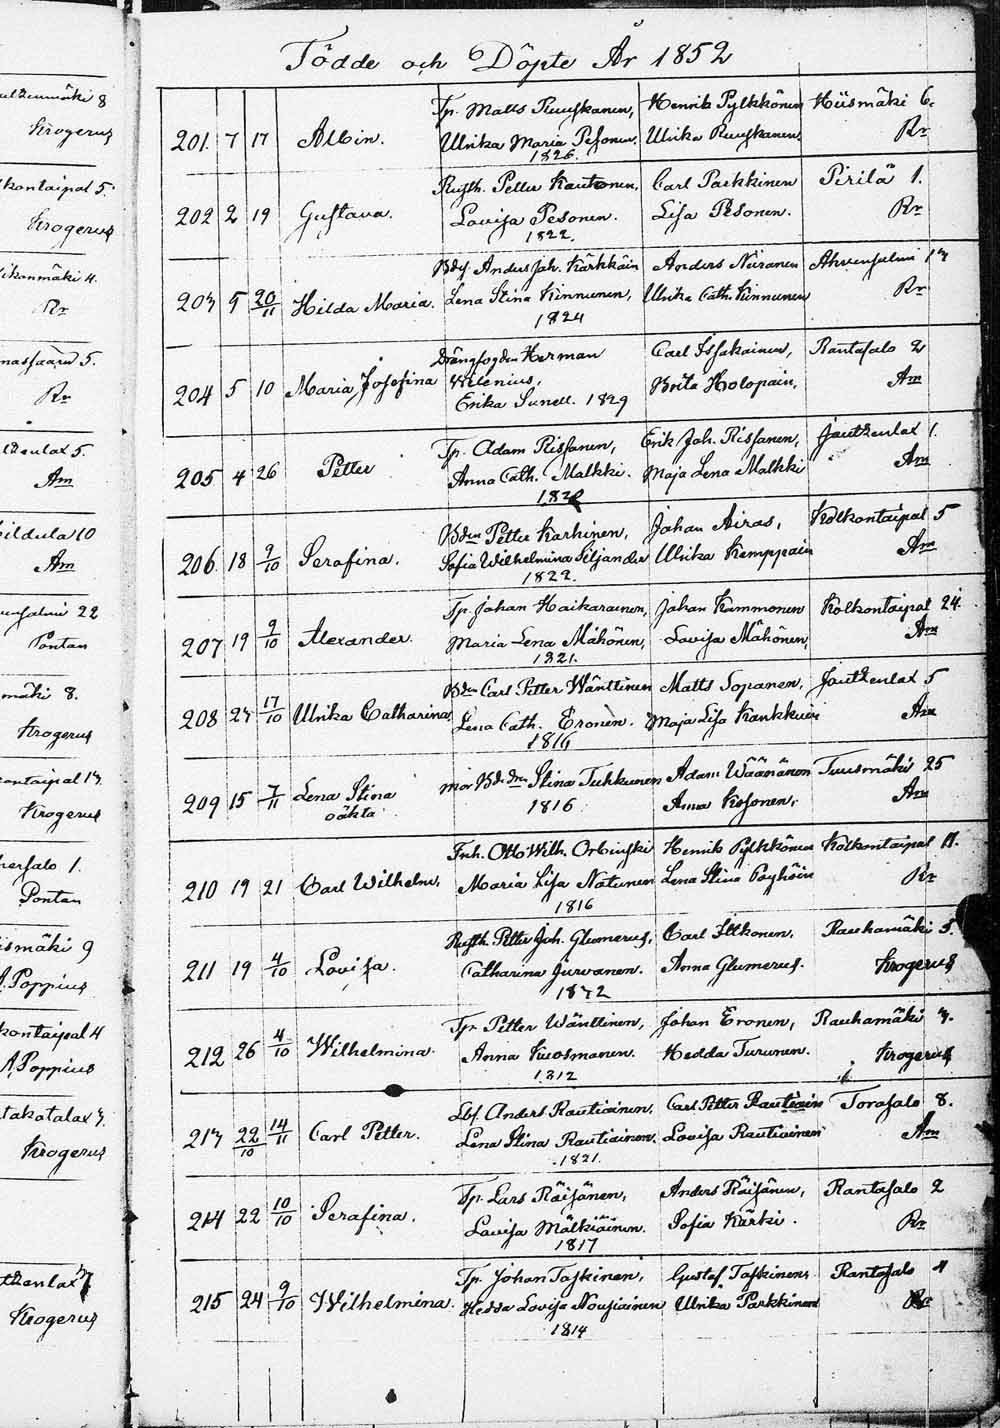 Födde och Döpte År 1852
ultzenmäki 8
Krogerus
kontaipal 5.
Krogerus
ikonmäki 4.
Rr
nassaari 5.
Rr
tzenlax 5.
Am
ildula 10
Am
ensalmi 22
Pontan
mäki 8.
Krogerus
ontaipal 13
Krogerus
hersalo 1.
Pontan
ismäki 9
A. Poppius
kontaipal 4
A. Poppius
takatalax 3.
Krogerus
tzenlax 7
Krogerus
Tp. Matts Ruuskanen, Henrik Pylkkönen Hiismäki 6.
201. 7 17 Albin. Ulrika Maria Pesonen. Ulrika Ruuskanen. Rr
1826.
Rusth. Petter Kautonen, Carl Parkkinen Pirilä 1.
202 2 19 Gustava. Lovisa Pesonen. Lisa Pesonen. Rr
1822.
Bds. Anders Joh. Kärkkäin Anders Niiranen Ahvensalmi 13
203 5 20/11 Hilda Maria. Lena Stina Kinnunen, Ulrika Cath. Kinnunen Rr
1824
Drängfogden Herman Carl Issakainen, Rantasalo 2
204 5 10 Maria Josefina Wilenius, Brita Holopain. Am
Erika Sunell. 1829
Tp. Adam Rissanen, Erik Joh. Rissanen, Jautzenlax 1.
205 4 26 Petter Anna Cath. Malkki. Maja Lena Malkki Am
Bden Petter Karhinen, Johan Airas, Kolkontaipal 5
206. 18 9/10 Serafina. Sofia Wilhelmina Siljander Ulrika Kemppain Am
1822.
Tp. Johan Haikarainen, Johan Kammonen Kolkontaipal 24.
207 19 9/10 Alexander. Maria Lena Mähönen, Lovisa Mähönen, Am
1821.
Bden Carl Petter Wänttinen Matts Sopanen, Jautzenlax 5
208 23 17/10 Ulrika Catharina. Lena Cath. Eronen. Maja Lisa Kankkuin Am
1816
mor Bde dn Stina Tukkunen Adam Wäänänen Tuusmäki 25
209 15 7/11 Lena Stina 1816 Anna Kosonen. Am
oäkta
Inh. Otto Wilh. Orbinski Henrik Pylkkönen Kolkontaipal 11.
210 19 21 Carl Wilhelm. Maria Lisa Natunen Lena Stina Pöyhöin Rr
1816
Rusth. Petter Joh. Glumerus, Carl Ittkonen. Rauhamäki 5.
211 19 4/10 Lovisa. Catharina Jurvanen. Anna Glumerus. Krogerus
Tp. Petter Wänttinen, Johan Eronen, Rauhamäki 3.
212 26 4/10 Wilhelmina. Anna Kuosmanen. Hedda Turunen. Krogerus
1812
Lbf. Anders Rautiainen, Carl Petter Rautiain Torasalo 8.
213 22/10 14/11 Carl Petter. Lena Stina Rautiainen. Lovisa Rautiainen Am
1821.
Tp. Lars Räisänen, Anders Räisänen, Rantasalo 2
214 22 10/10 Serafina. Lovisa Mälkiäinen. Sofia Kärki. Rr
1817
Tp. Johan Taskinen, Gustaf Taskinen, Rantasalo 4
215 24 9/10 Wilhelmina. Hedda Lovisa Nousiainen Ulrika Parkkinen Rr
1814